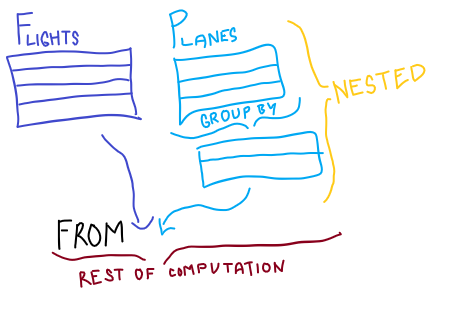 FLIGHTS
PLANES
GROUP BY
NESTED
FROM
REST OF COMPUTATION